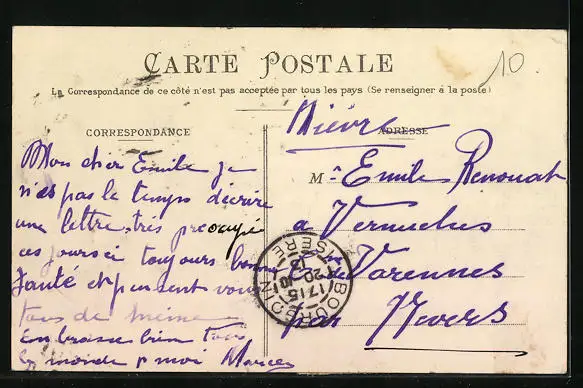 CARTE POSTALE
10.
La Correspondance de ce côté n'est pas acceptée par tous les pays (Se renseigner à la poste)
CORRESPONDANCE
Mon cher Emile je
n'es pas le temps décrire
une lettre, très preocupé
ces jours ci toujours bonne
Santé et pensent vous
tous de même
Embrasse bien tous
le monde p moi Marcel
Nièvre
ADRESSE
M. Emile Renouat
à Vernuches
Varennes
par Nevers
BOURGOIN
ISERE
17 15
20